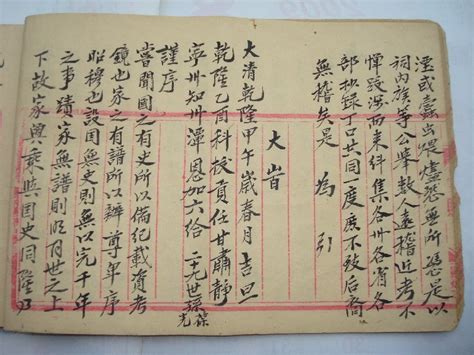 湮或蠹虫喂盡恐無所憑是以
祠內族等公舉数人遠稽近考不
憚跋涉而来纠集各州各省各
部抄録丁口共同一度庶不致后裔
無稽矣是為引
大旹
大清乾隆甲午歲春月吉旦
乾隆乙酉科拔貢任甘肅靜
寧州知州潭恩加六給 二九世孫
謹序
嘗聞國之有史所以備紀載資考
鏡也家之有譜所以辨尊卑序
昭穆也設国無史則無以完千年
之事蹟家無譜則百世之上
下故家興乘與国史同隆